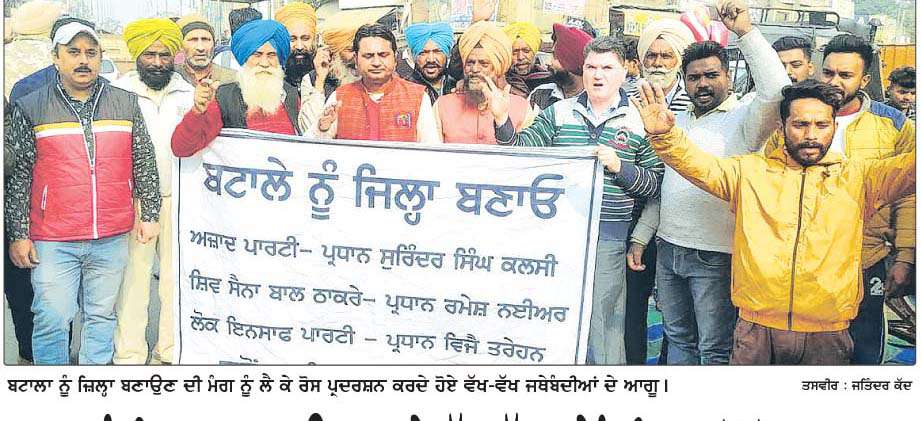 ਬਟਾਲੇ ਨੂੰ ਜਿਲ੍ਹਾ ਬਣਾਓ
ਅਜ਼ਾਦ ਪਾਰਟੀ- ਪ੍ਰਧਾਨ ਸੁਰਿੰਦਰ ਸਿੰਘ ਕਲਸੀ
ਸ਼ਿਵ ਸੈਨਾ ਬਾਲ ਠਾਕਰੇ- ਪ੍ਰਧਾਨ ਰਮੇਸ਼ ਨਈਅਰ
ਲੋਕ ਇਨਸਾਫ ਪਾਰਟੀ - ਪ੍ਰਧਾਨ ਵਿਜੈ ਤਰੇਹਨ
ਬਟਾਲਾ ਨੂੰ ਜ਼ਿਲ੍ਹਾ ਬਣਾਉਣ ਦੀ ਮੰਗ ਨੂੰ ਲੈ ਕੇ ਰੋਸ ਪ੍ਰਦਰਸ਼ਨ ਕਰਦੇ ਹੋਏ ਵੱਖ-ਵੱਖ ਜਥੇਬੰਦੀਆਂ ਦੇ ਆਗੂ। ਤਸਵੀਰ : ਜਤਿੰਦਰ ਕੱਦ